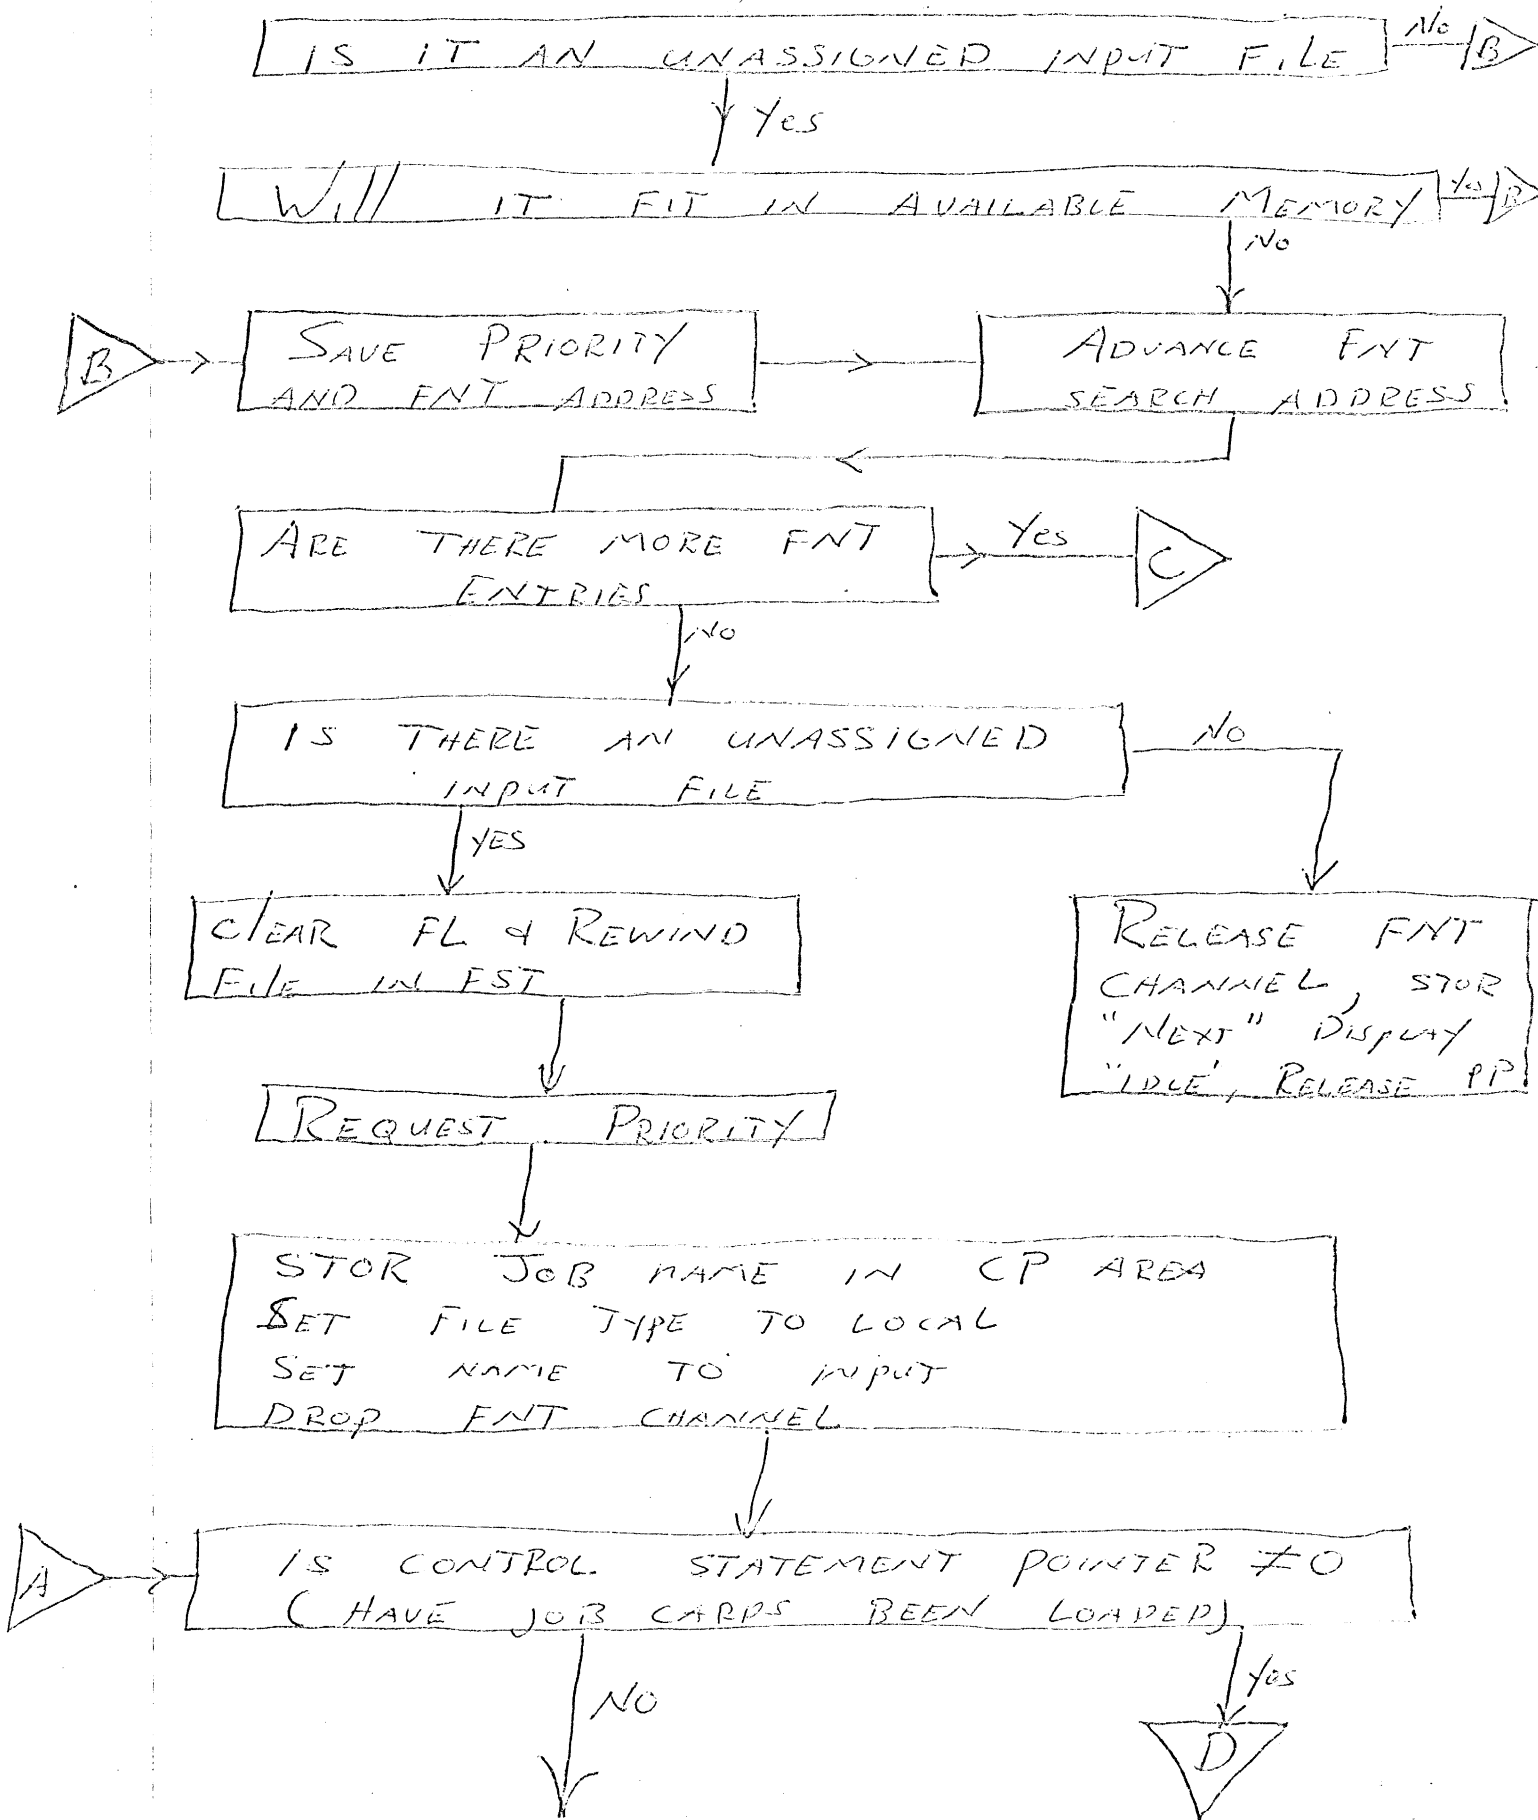 IS IT AN UNASSIGNED INPUT FILE
No
B
Yes
Will IT FIT IN AVAILABLE MEMORY
Yes
B
No
B
SAVE PRIORITY
AND FNT ADDRESS
ADVANCE FNT
SEARCH ADDRESS
ARE THERE MORE FNT
ENTRIES
Yes
C
NO
IS THERE AN UNASSIGNED
INPUT FILE
NO
YES
CLEAR FL & REWIND
File IN FST
RELEASE FNT
CHANNEL, STOR
"NEXT" DISPLAY
"IDLE', RELEASE PP
REQUEST PRIORITY
STOR JOB NAME IN CP AREA
SET FILE TYPE TO LOCAL
SET NAME TO INPUT
DROP FNT CHANNEL
A
IS CONTROL STATEMENT POINTER ≠0
(HAVE JOB CARDS BEEN LOADED)
NO
Yes
D